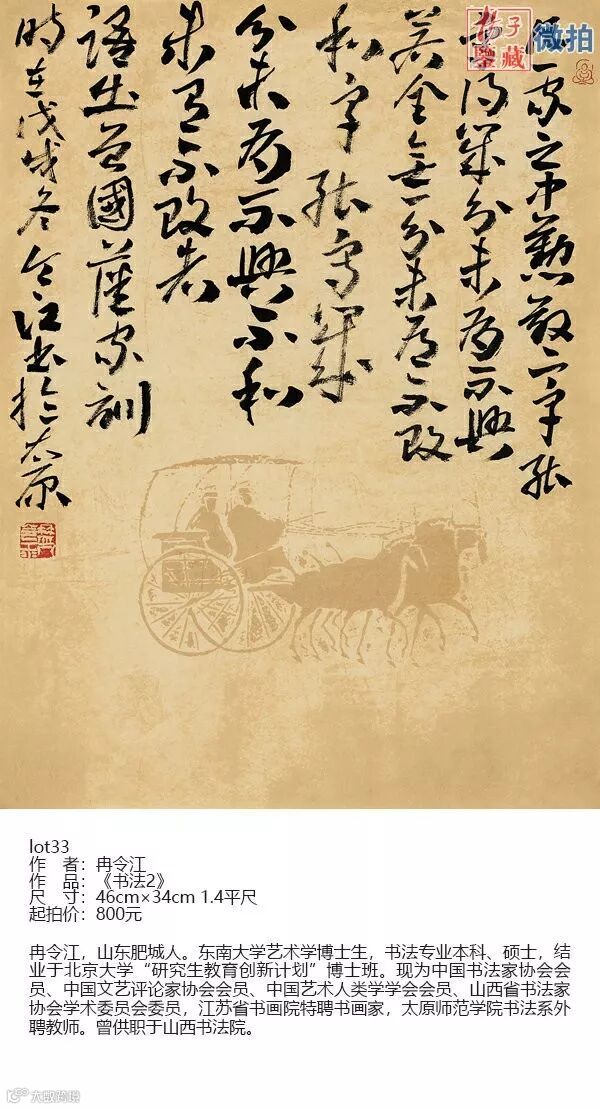 微拍
一家之中勤敬二字能
守得幾分未有不興
若全無一分未有不敗
和字能守幾
分未有不興不和
未有不敗者
語出曾國藩家訓
時在戊戌冬令江書於太原
lot33
作 者：冉令江
作 品：《书法2》
尺 寸：46cm×34cm 1.4平尺
起拍价：800元
冉令江，山东肥城人。东南大学艺术学博士生，书法专业本科、硕士，结
业于北京大学“研究生教育创新计划”博士班。现为中国书法家协会会
员、中国文艺评论家协会会员、中国艺术人类学学会会员、山西省书法家
协会学术委员会委员，江苏省书画院特聘书画家，太原师范学院书法系外
聘教师。曾供职于山西书法院。